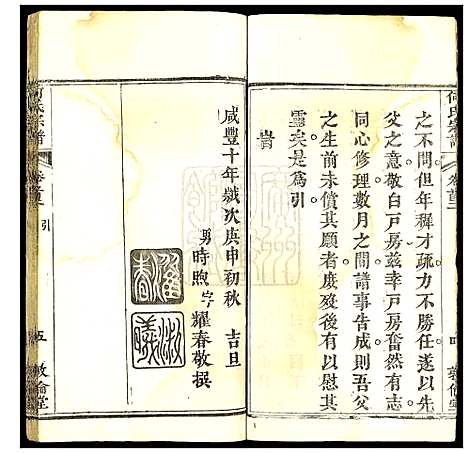 何氏宗譜
卷首三
敦倫堂
之不問但年穉才疏力不勝任遂以先
父之意敬白戸房兹幸戸房奮然有志
同心修理數月之間譜事告成則吾父
之生前未償其願者庶歿後有以慰其
靈矣是爲引
旹
咸豐十年歲次庚申初秋 吉旦
男時煦字耀春敬撰
引
五
敦倫堂